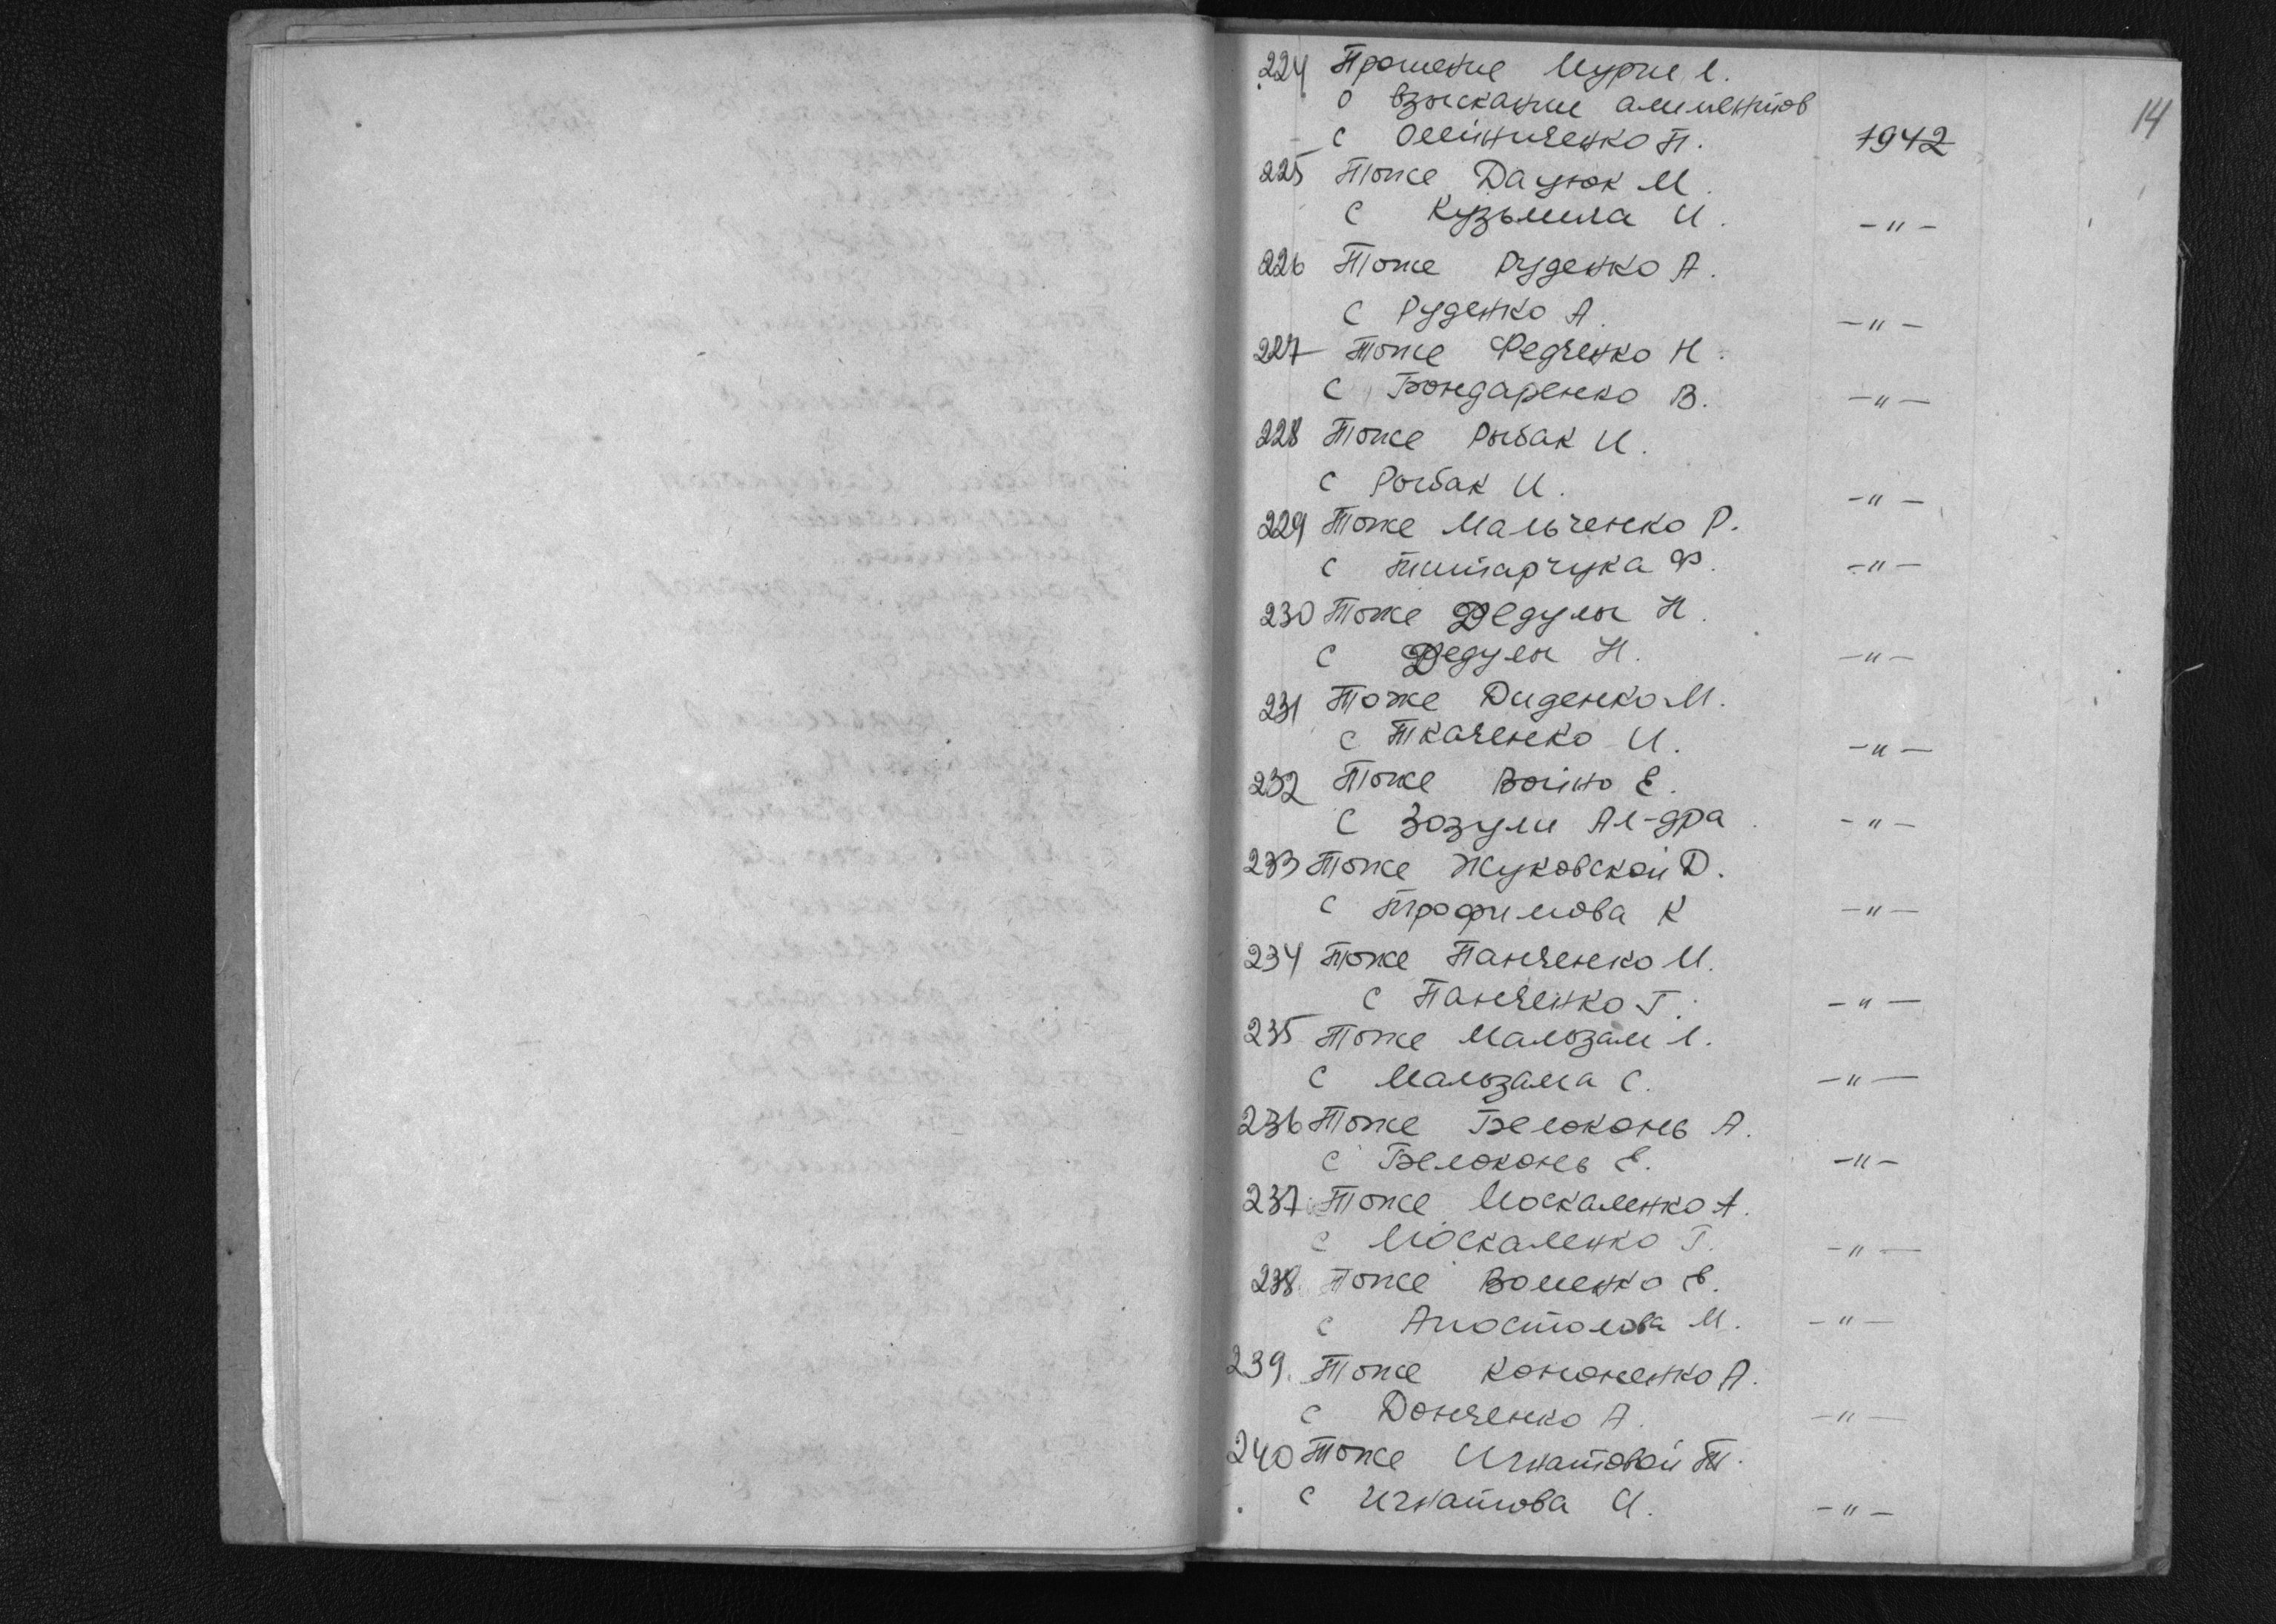 14
224 Прошение Мурги Л.
о взыскании алиментов
с Олійниченко П. 1942
225 Тоже Дацюк М.
с Кузьмича И. -"-
226 Тоже Руденко А.
с Руденко А. -"-
227 Тоже Федченко Н.
с Бондаренко В. -"-
228 Тоже Рыбак И.
с Рыбак И. -"-
229 Тоже Мальченко Р.
с Титарчука Ф. -"-
230 Тоже Дедулы Н.
с Дедулы Н. -"-
231 Тоже Диденко М.
с Ткаченко И. -"-
232 Тоже Войно Е.
с Зозули Ал-дра -"-
233 Тоже Жуковской Д.
с Трофимова К -"-
234 Тоже Панченко М.
с Панченко Г. -"-
235 Тоже Малозам Л.
с Малозама С. -"-
236 Тоже Белоконь А.
с Белоконь Е. -"-
237 Тоже Москаленко А.
с Москаленко Г. -"-
238. Тоже Воленко Е.
с Апостолова М. -"-
239. Тоже Кононенко А.
с Донченко А. -"-
240 Тоже Игнатовой Т.
с Игнатова И. -"-